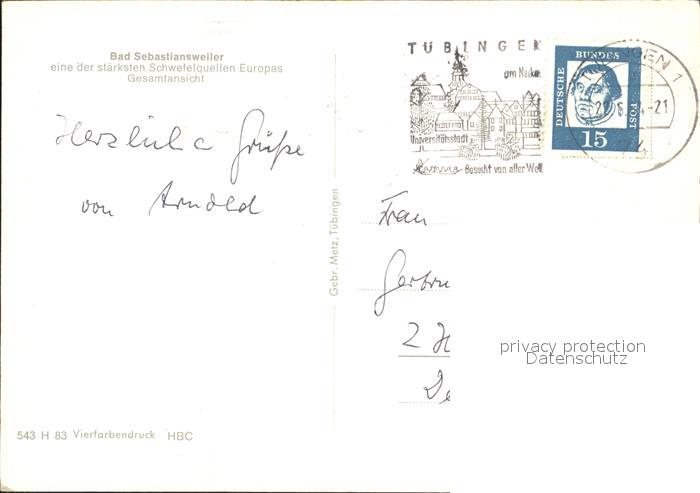 Bad Sebastiansweiler
eine der stärksten Schwefelquellen Europas
Gesamtansicht
Herzliche Grüße
von Arnold
543 H 83 Vierfarbendruck HBC
Gebr. Metz, Tübingen
TÜBINGEN
am Neckar
Universitätsstadt
Besucht von aller Welt
DEUTSCHE
BUNDES
POST
15
NGEN 1
-21
Frau
Gertru
2 H
privacy protection
Datenschutz